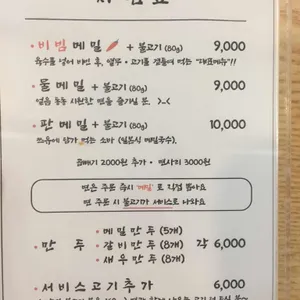 · 비빔메밀 + 불고기 (80g) 9,000
육수를 넣어 비빈 후, 열무 · 고기를 곁들여 먹는 "대표메뉴"!!
· 물메밀 + 불고기 (80g) 9,000
얼음 동동 시원한 면을 즐기실 분. >_<
· 판메밀 + 불고기 (80g) 10,000
쯔유에 담가 먹는 소바 (일본식 메밀국수).
곱빼기 2000원 추가 · 면사리 3000원
면은 주문 즉시 '메밀'로 직접 뽑아요
면 주문 시 불고기가 서비스로 나와요
· 메밀만두 (5개)
· 만두 · 갈비만두 (8개) 각 6,000
· 새우만두 (8개)
· 서비스고기추가 6,000